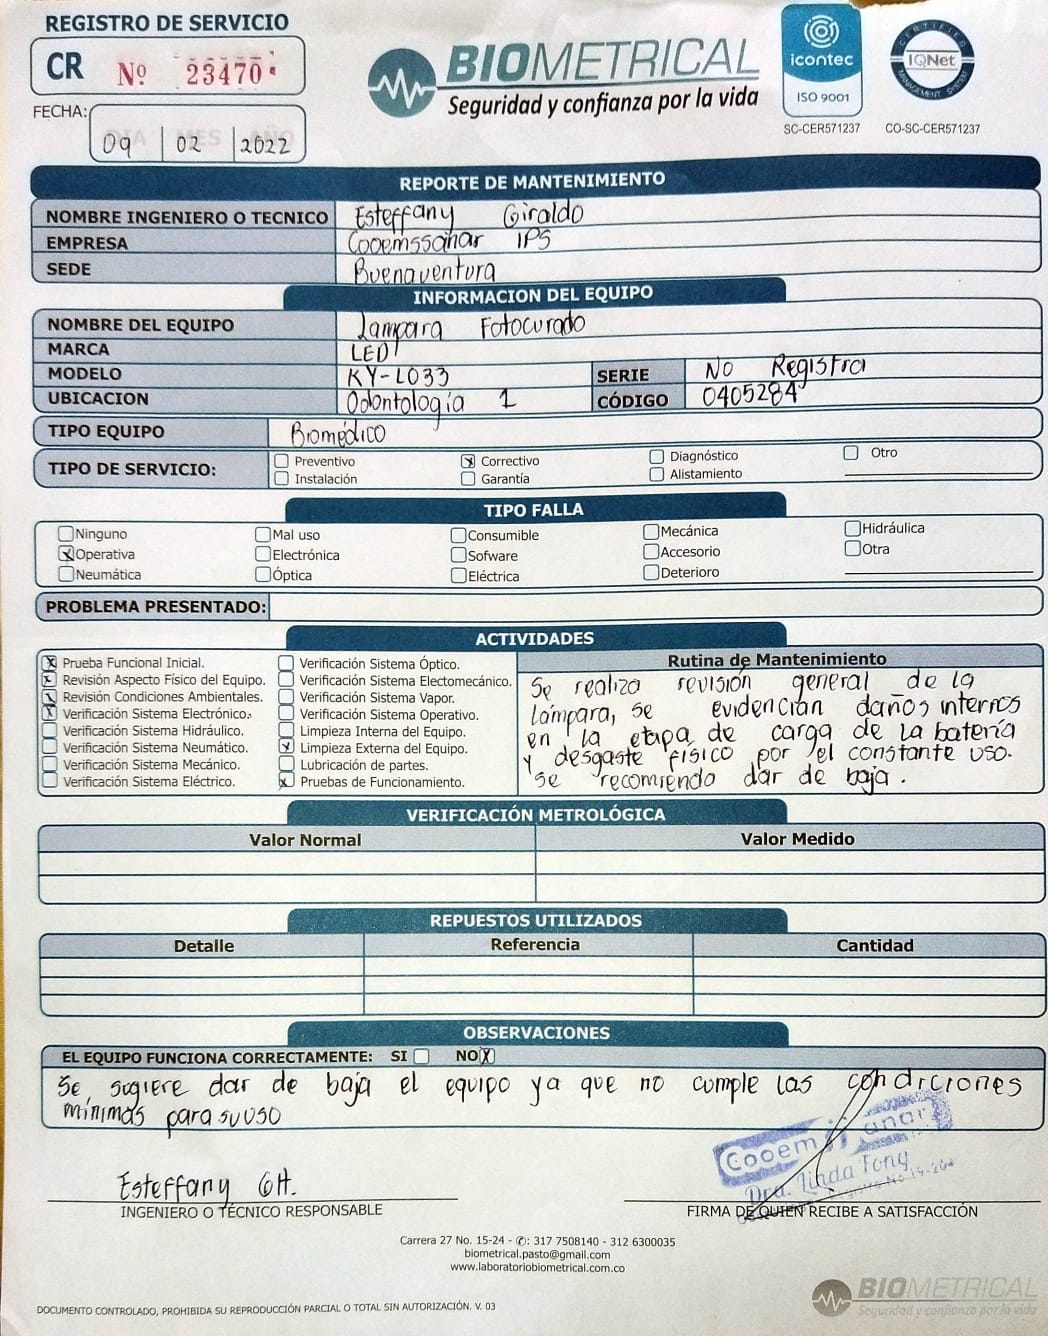 REGISTRO DE SERVICIO
CR Nº 23470
FECHA:
DIA MES AÑO
09 02 2022
BIOMETRICAL
Seguridad y confianza por la vida
icontec
ISO 9001
SC-CER571237
CERTIFIED
IQNet
MANAGEMENT SYSTEM
CO-SC-CER571237
REPORTE DE MANTENIMIENTO
NOMBRE INGENIERO O TECNICO Esteffany Giraldo
EMPRESA Cooemssanar IPS
SEDE Buenaventura
INFORMACION DEL EQUIPO
NOMBRE DEL EQUIPO Lampara Fotocurado
MARCA LED
MODELO KY-L033 SERIE No Registra
UBICACION Odontología 1 CÓDIGO 0405284
TIPO EQUIPO Biomédico
TIPO DE SERVICIO:
Preventivo x Correctivo Diagnóstico Otro
Instalación Garantía Alistamiento
TIPO FALLA
Ninguno Mal uso Consumible Mecánica Hidráulica
x Operativa Electrónica Sofware Accesorio Otra
Neumática Óptica Eléctrica Deterioro
PROBLEMA PRESENTADO:
ACTIVIDADES
x Prueba Funcional Inicial.
x Revisión Aspecto Físico del Equipo.
x Revisión Condiciones Ambientales.
x Verificación Sistema Electrónico.
Verificación Sistema Hidráulico.
Verificación Sistema Neumático.
Verificación Sistema Mecánico.
Verificación Sistema Eléctrico.
Verificación Sistema Óptico.
Verificación Sistema Electomecánico.
Verificación Sistema Vapor.
Verificación Sistema Operativo.
Limpieza Interna del Equipo.
x Limpieza Externa del Equipo.
Lubricación de partes.
x Pruebas de Funcionamiento.
Rutina de Mantenimiento
Se realizo revisión general de la
lámpara, se evidencian daños internos
en la etapa de carga de la batería
y desgaste físico por el constante uso.
se recomienda dar de baja.
VERIFICACIÓN METROLÓGICA
Valor Normal Valor Medido
REPUESTOS UTILIZADOS
Detalle Referencia Cantidad
OBSERVACIONES
EL EQUIPO FUNCIONA CORRECTAMENTE: SI NO x
Se sugiere dar de baja el equipo ya que no cumple las condiciones
mínimas para su uso
Cooem anar
Dra. Linda Tony
Esteffany GH.
INGENIERO O TÉCNICO RESPONSABLE
FIRMA DE QUIEN RECIBE A SATISFACCIÓN
Carrera 27 No. 15-24 - ✆: 317 7508140 - 312 6300035
biometrical.pasto@gmail.com
www.laboratoriobiometrical.com.co
BIOMETRICAL
Seguridad y confianza por la vida
DOCUMENTO CONTROLADO, PROHIBIDA SU REPRODUCCIÓN PARCIAL O TOTAL SIN AUTORIZACIÓN. V. 03